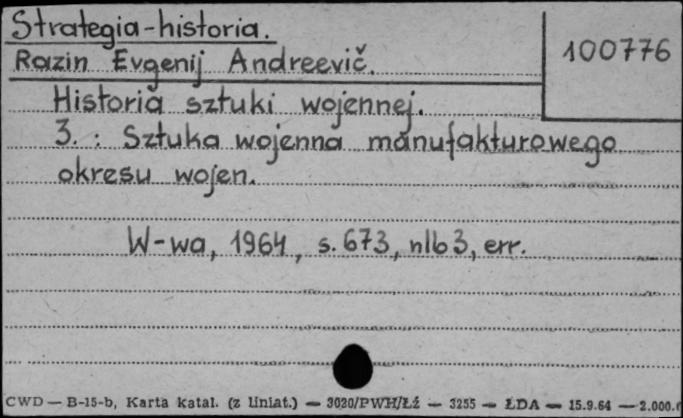 Strategia-historia.
100776
Razin Evgenij Andreevič.
Historia sztuki wojennej.
3. : Sztuka wojenna manufakturowego
okresu wojen.
W-wa, 1964, s. 673, nlb 3, err.
CWD — B-15-b, Karta katal. (z liniat.) — 3020/PWH/Łź — 3255 — ŁDA — 15.9.64 — 2.000.